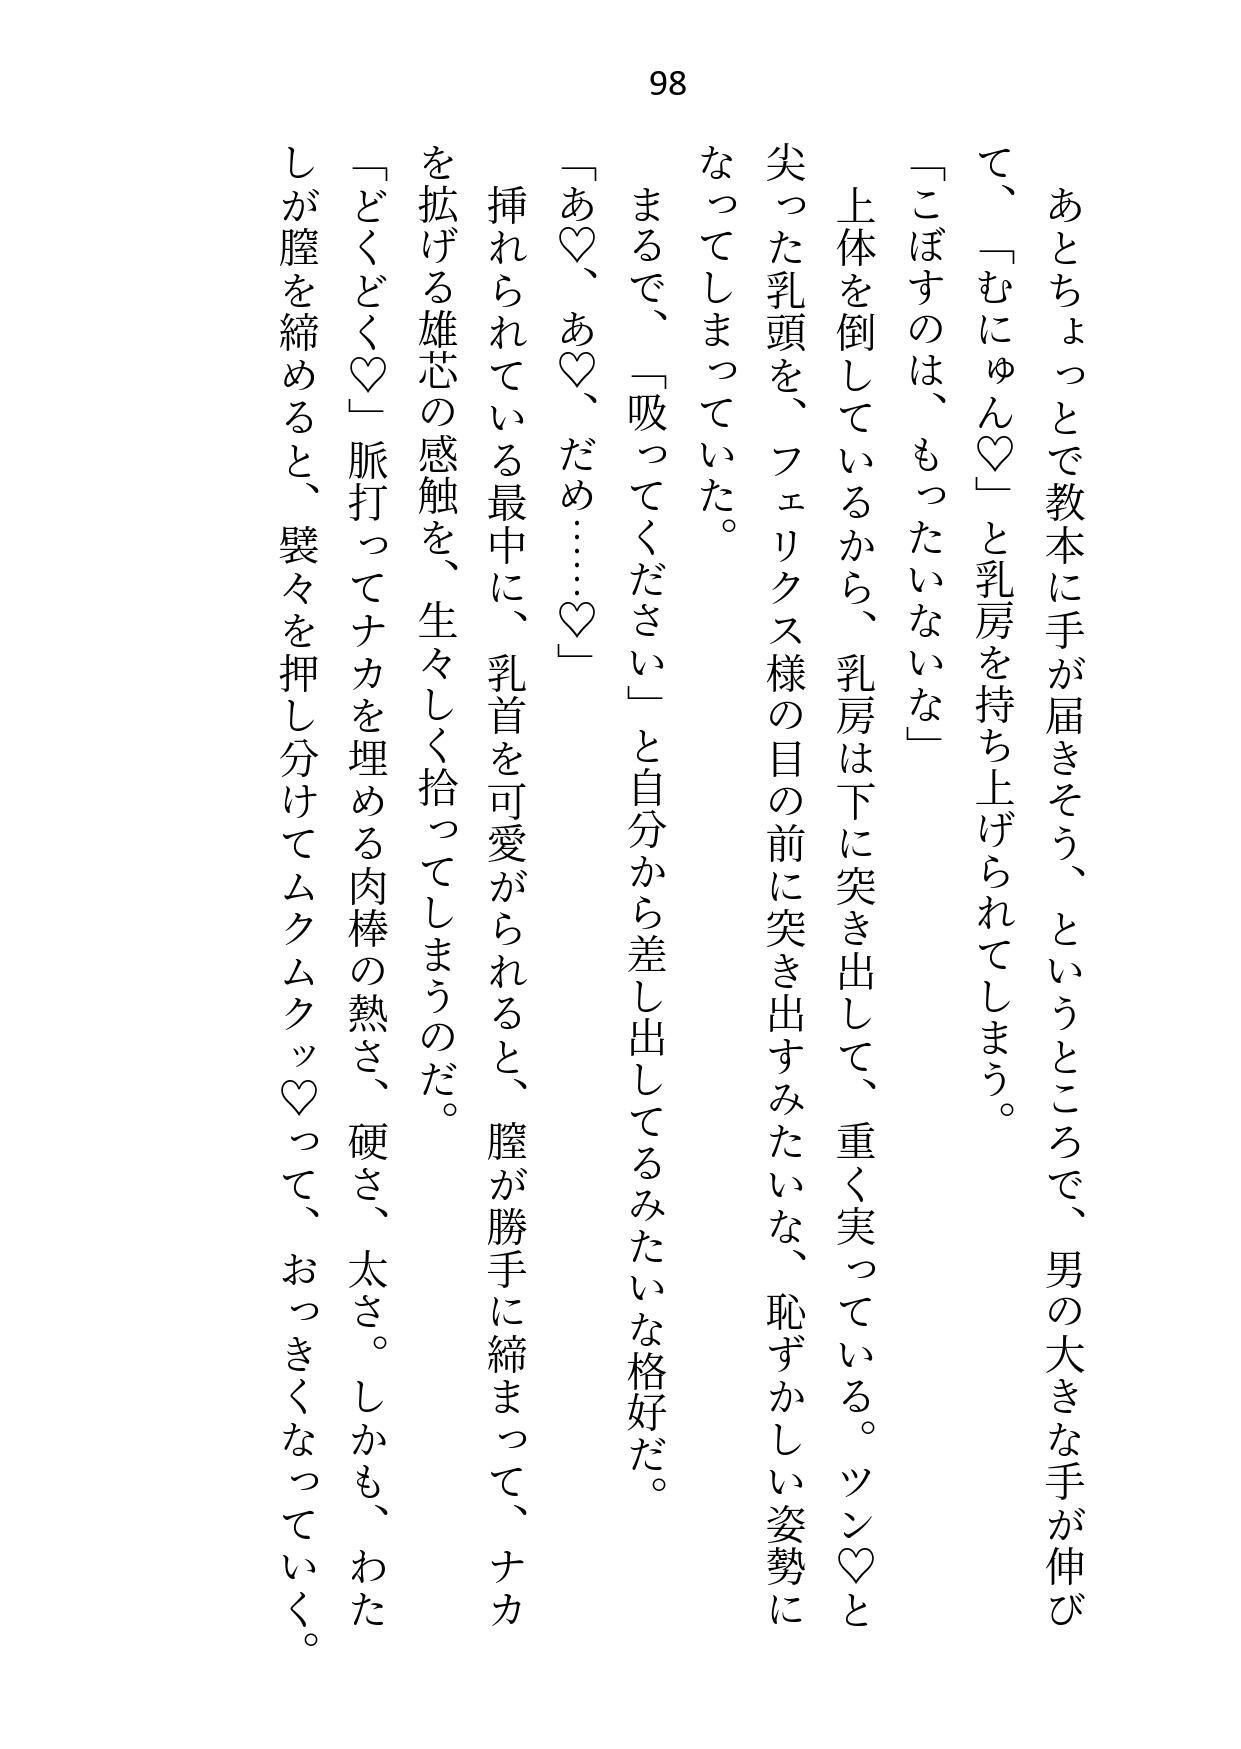 98
あとちょっとで教本に手が届きそう、というところで、男の大きな手が伸び
て、「むにゅん♡」と乳房を持ち上げられてしまう。
「こぼすのは、もったいないな」
上体を倒しているから、乳房は下に突き出して、重く実っている。ツン♡と
尖った乳頭を、フェリクス様の目の前に突き出すみたいな、恥ずかしい姿勢に
なってしまっていた。
まるで、「吸ってください」と自分から差し出してるみたいな格好だ。
「あ♡、あ♡、だめ……♡」
挿れられている最中に、乳首を可愛がられると、膣が勝手に締まって、ナカ
を拡げる雄芯の感触を、生々しく拾ってしまうのだ。
「どくどく♡」脈打ってナカを埋める肉棒の熱さ、硬さ、太さ。しかも、わた
しが膣を締めると、襞々を押し分けてムクムクッ♡って、おっきくなっていく。